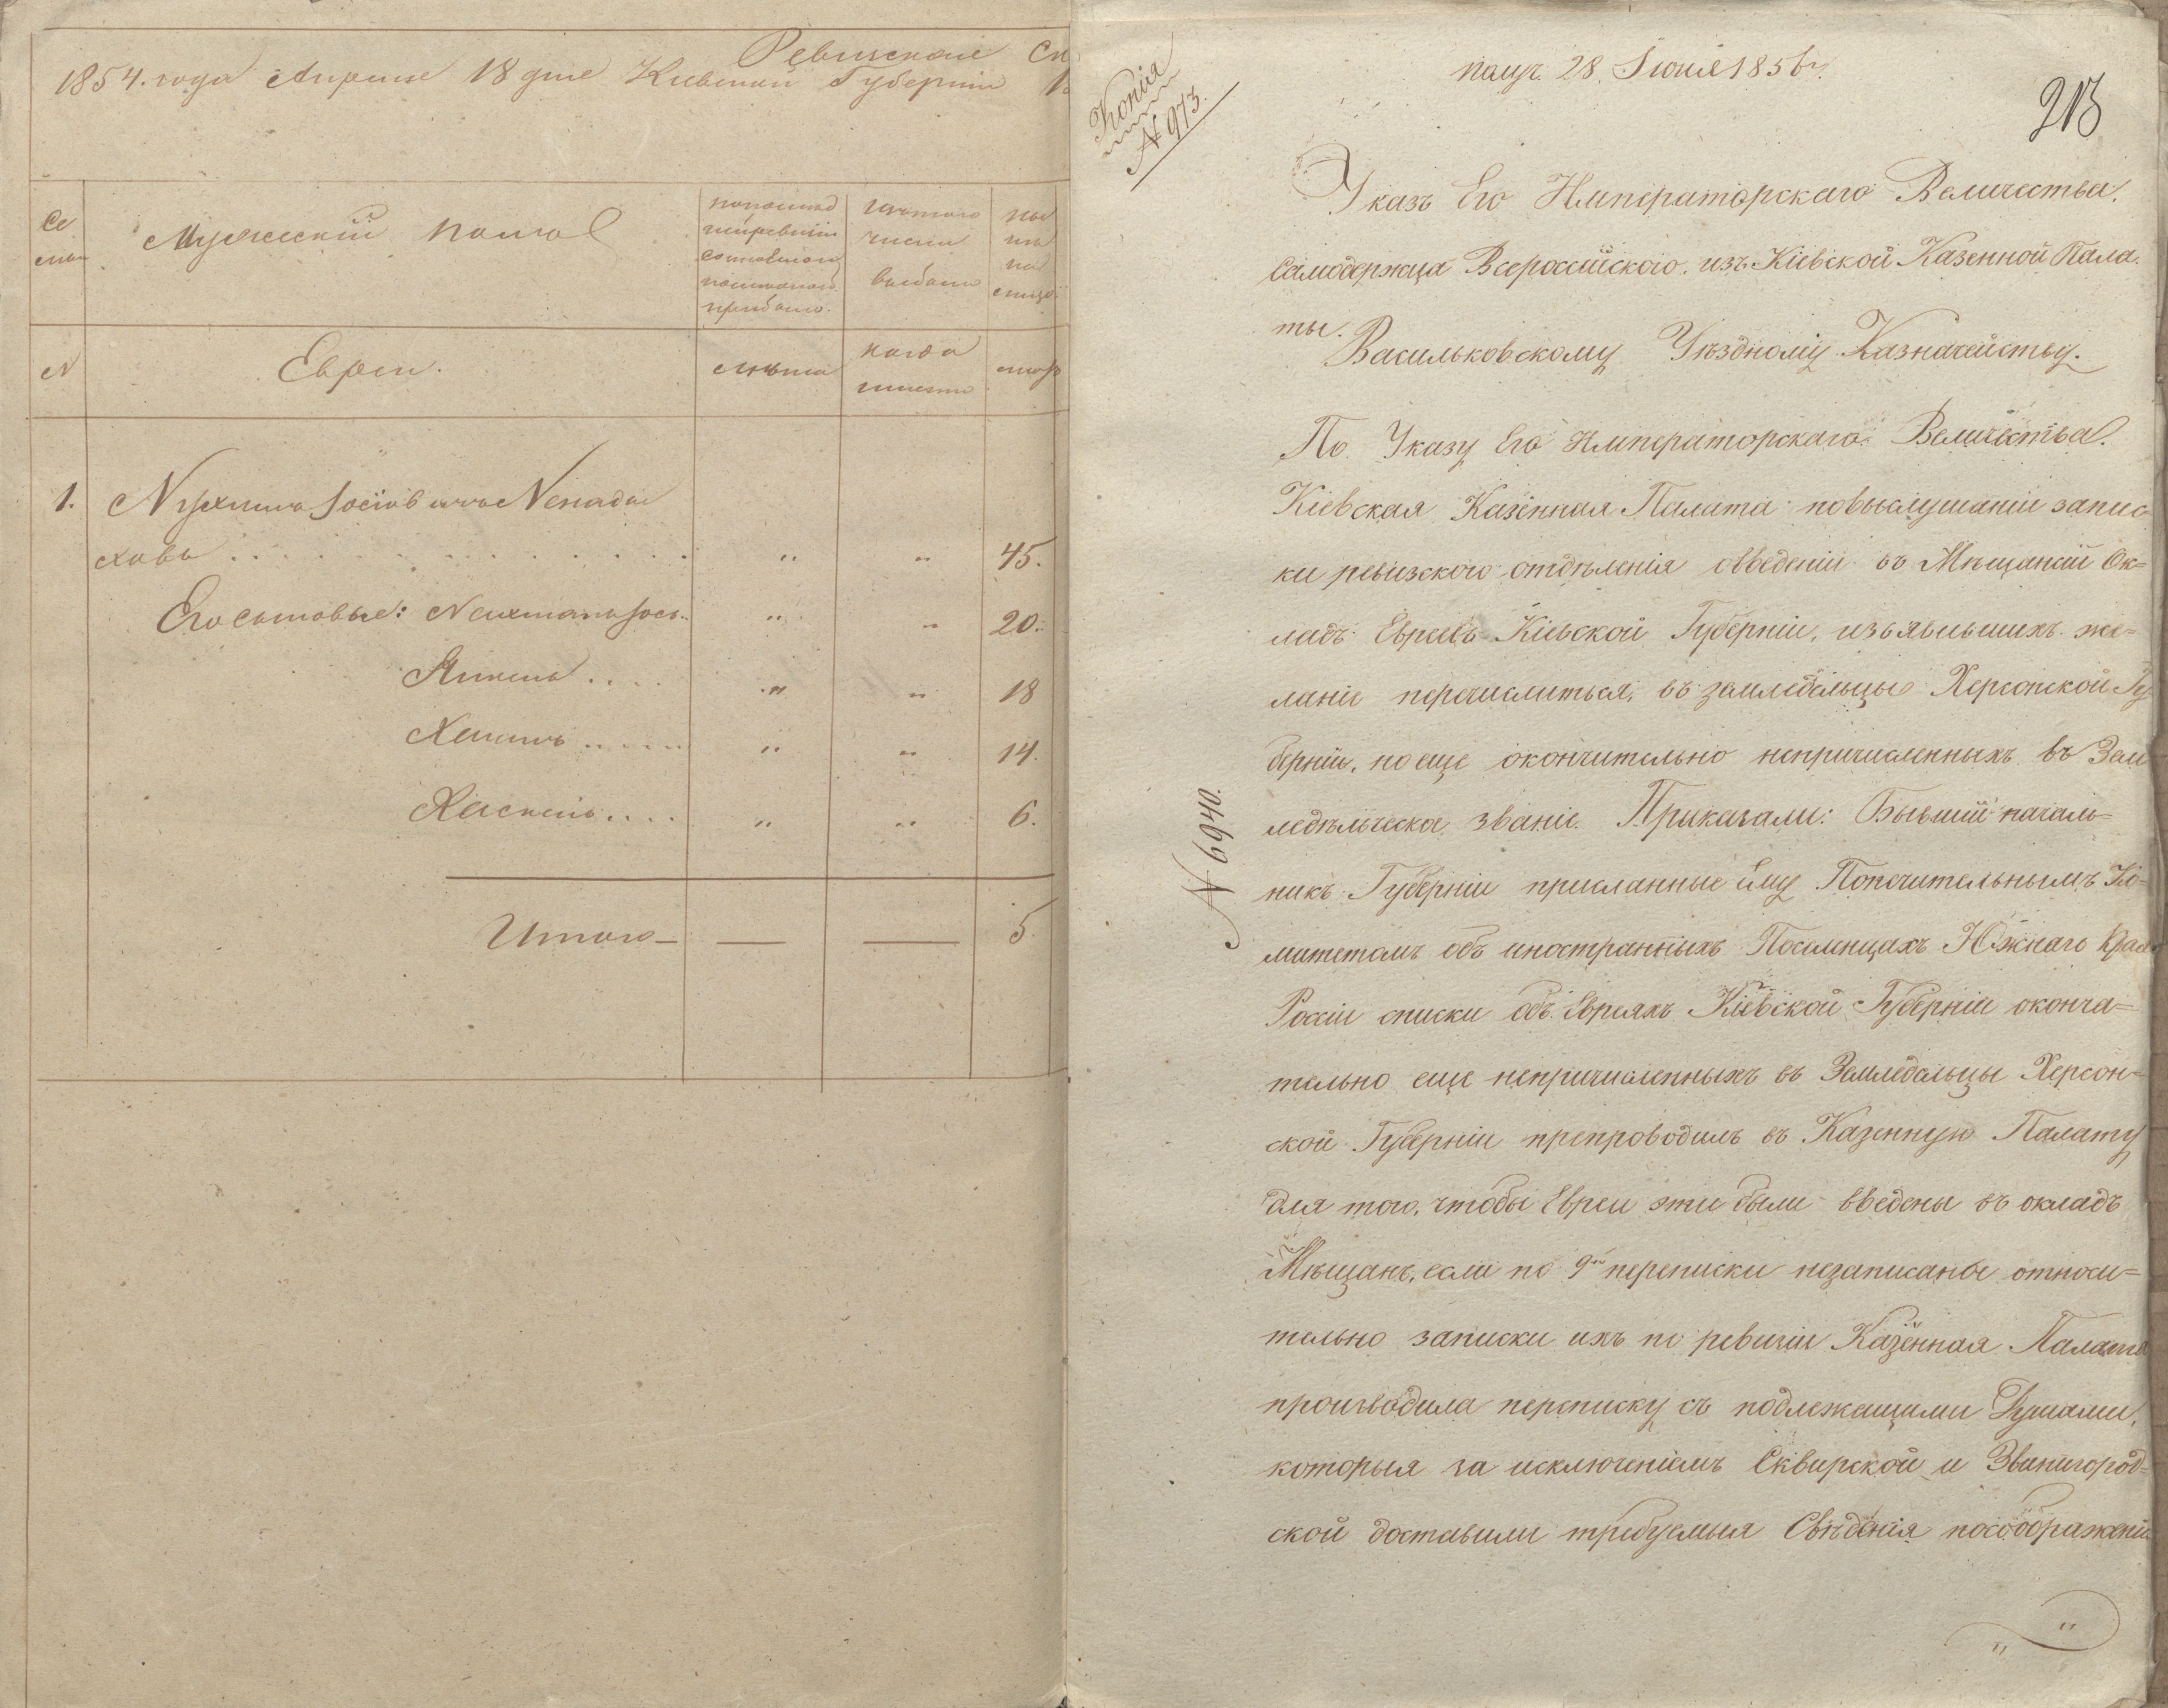 Ревизская
1854. года Апреля 18 дня Киевской Губернии
Се
мьи
Мужескій полъ
по послед
ней ревизіи
состояло и
после оной
прибыло.
изъ того
числа
выбыло
ны
не
на
лицо
N
Евреи.
лета
когда
именно
лета
1.
Нухимъ Іосіовичъ
ховъ . . . . . . . . . . . . . . " " 45.
Его сыновья: Нехманъ Іось.. " " 20.
Янкель . . . . " " 18
Хаимъ . . . . . " " 14.
Хаскель . . . . " " 6.
Итого — — — 5.
Копія
N 973.
получ. 28. Іюня 1856 г.
213
Указъ Его Императорскаго Величества.
Самодержца Всероссійского. изъ Кіевской Казенной Пала-
ты.
Васильковскому Уѣздному Казначейству.
По Указу Его Императорскаго Величества.
Кіевская Казенная Палата повыслушаніи запис
ки ревизского отдѣленія оввденіи въ Мѣщанскій Ок=
ладъ Евреевъ Кіевской Губерніи, изъявившихъ же=
ланіе перечислиться, въ земледѣльцы Херсонской Гу
берніи, но еще окончительно непричисленныхъ въ Зем
ледѣльческое званіе. Приказали: Бывшій началь=
N 6940.
никъ Губерніи присланные ему Попечительнымъ Ко=
митетомъ объ иностранныхъ Поселенцахъ Южнаго Края
Россіи списки объ Евреяхъ Кіевской Губерніи оконча=
тельно еще непричисленныхъ въ Земледельцы Херсон=
ской Губерніи препроводилъ въ Казенную Палату
для того, чтобы Евреи эти были введены въ окладъ
Мѣщанъ, если по 9й переписки незаписаны относи=
тельно записки ихъ по ревизіи Казенная Палата
производила переписку съ подлежащими Думами,
которыя за исключеніемъ Сквирской и Звенигород=
ской доставили требуемыя Свѣденія посоображеніи